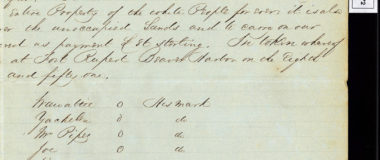 Entire Property of the white People for ever it is als
the unoccupied Lands and to carry on our
as payment £ st sterling. In token whereof
at Fort Rupert Beaver Harbor on the Eighth
and fifty one.
Wawattie o His mark
Yachelen o do
Mr Pipes o do
Joe o do